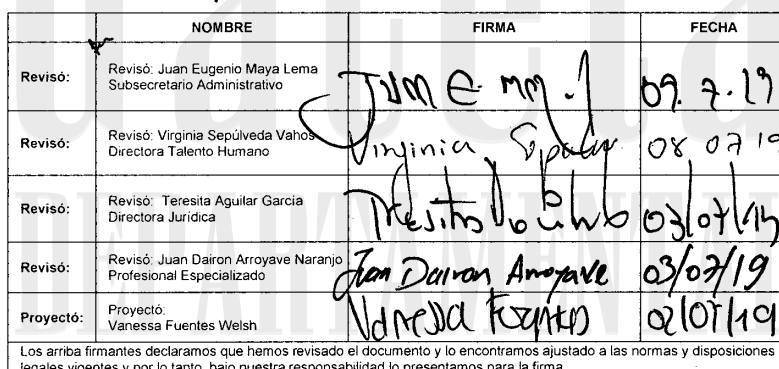 NOMBRE FIRMA FECHA
Revisó: Revisó: Juan Eugenio Maya Lema
Subsecretario Administrativo
09.7.19
Revisó: Revisó: Virginia Sepúlveda Vahos
Directora Talento Humano
Virginia 08 07 19
Revisó: Revisó: Teresita Aguilar García
Directora Jurídica
03/07/19
Revisó: Revisó: Juan Dairon Arroyave Naranjo
Profesional Especializado
Juan Dairon Arroyave 03/07/19
Proyectó: Proyectó:
Vanessa Fuentes Welsh
Vanessa Fuentes 02/07/19
Los arriba firmantes declaramos que hemos revisado el documento y lo encontramos ajustado a las normas y disposiciones
legales vigentes y por lo tanto, bajo nuestra responsabilidad lo presentamos para la firma.
DEPARTAMENTAL